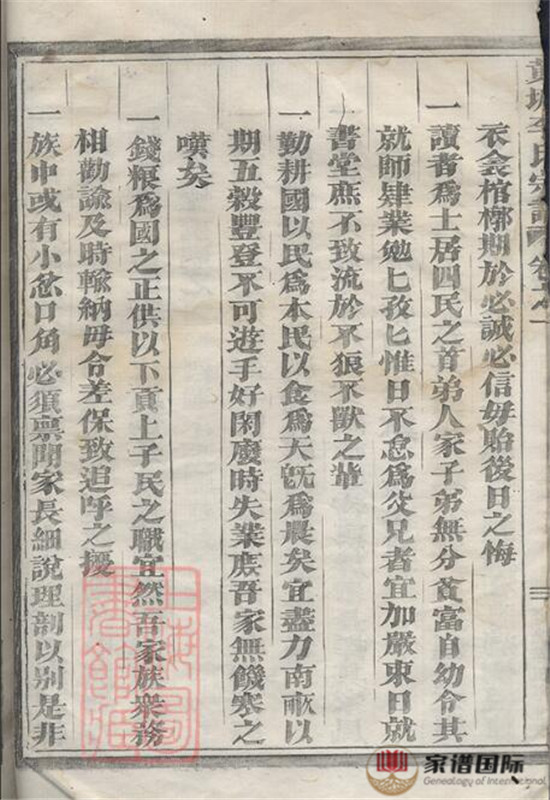 黃城李氏宗譜 卷之一
衣衾棺槨期於必誠必信毋貽後日之悔
一讀者爲士居四民之首弟人家子弟無分貧富自幼令其
就師肄業勉匕孜匕惟日不怠爲父兄者宜加嚴束日就
書堂庶不致流於不狼不獸之輩
一勤耕國以民爲本民以食爲天旣爲農矣宜盡力南畝以
期五穀豐登不可遊手好閑廢時失業庶吾家無饑寒之
嘆矣
一錢糧爲國之正供以下貢上子民之職宜然吾家族衆務
相勸諭及時輸納毋令差保致追呼之擾
一族中或有小忿口角必須禀聞家長細說理剖以别是非
家谱国际
Genealogy of International